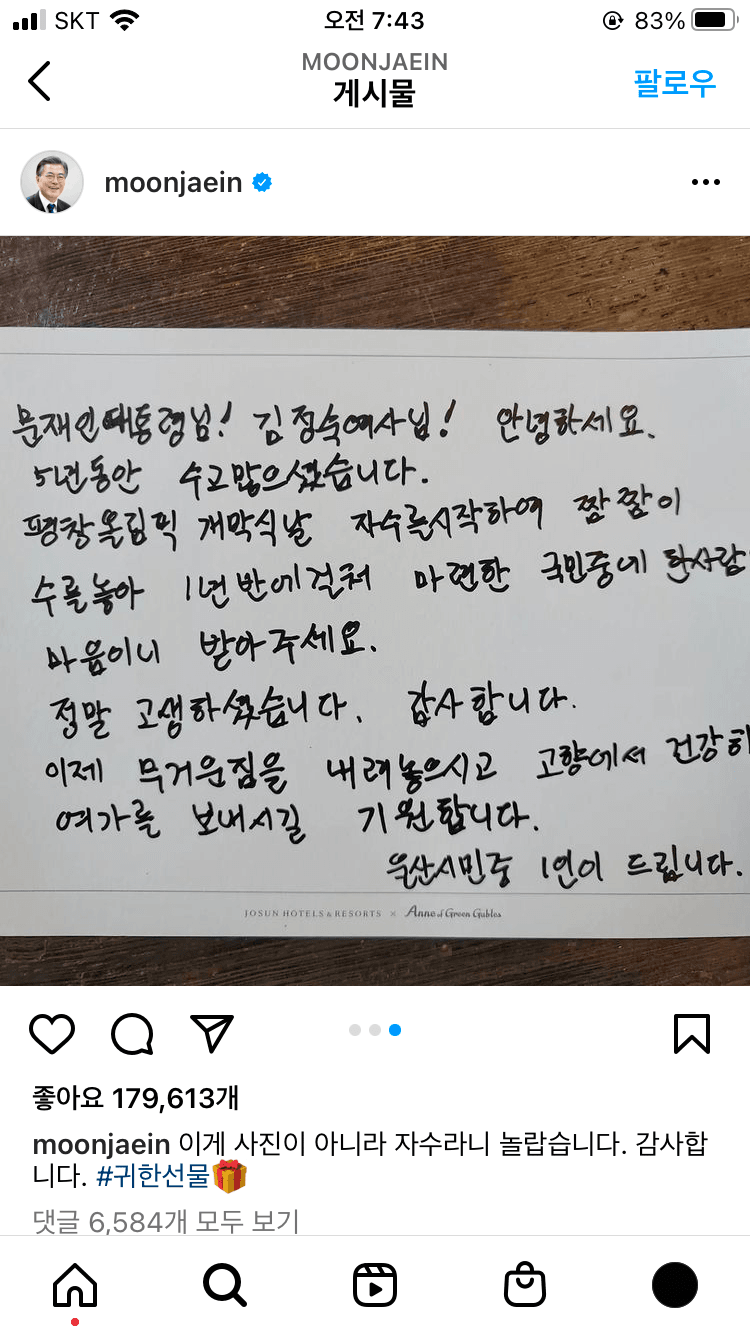 SKT 오전 7:43 83%
MOONJAEIN
게시물 팔로우
moonjaein
문재인대통령님! 김정숙여사님! 안녕하세요.
5년동안 수고많으셨습니다.
평창올림픽 개막식날 자수를시작하여 짬짬이
수를놓아 1년반에걸쳐 마련한 국민중에 한사람
마음이니 받아주세요.
정말 고생하셨습니다. 감사합니다.
이제 무거운짐을 내려놓으시고 고향에서 건강하
여가를 보내시길 기원합니다.
울산시민중 1인이 드립니다.
JOSUN HOTELS & RESORTS × Anne of Green Gables
좋아요 179,613개
moonjaein 이게 사진이 아니라 자수라니 놀랍습니다. 감사합
니다. #귀한선물🎁
댓글 6,584개 모두 보기